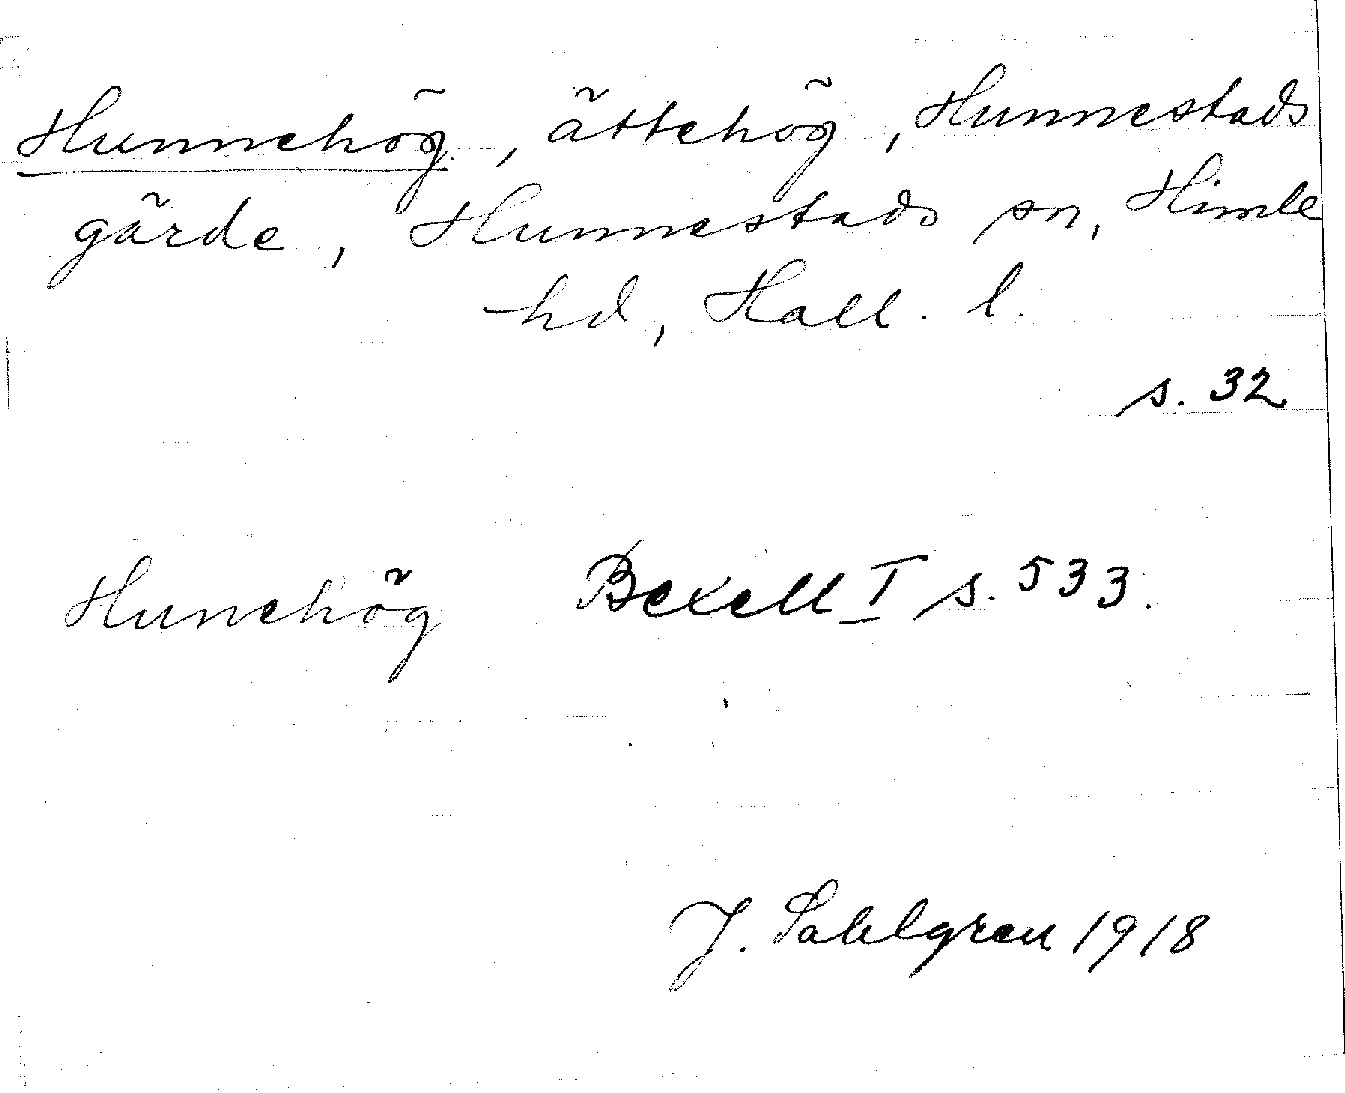 Hunnehög, ättehög, Hunnestads
gärde, Hunnestads sn, Himle
hd, Hall. l.
s. 32
Hunehög Bexell I s. 533.
J. Sahlgren 1918